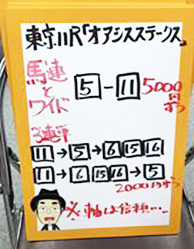 東京11R「オアシスステークス」
馬連とワイド 5-11 5000円ずつ
3連単
11→5→6 15 16
11→6 15 16→5
2000円ずつ
※軸は信頼…。